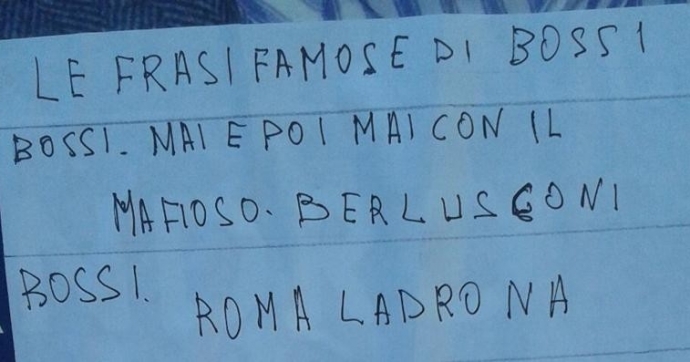 LE FRASI FAMOSE DI BOSSI
BOSSI. MAI E POI MAI CON IL
MAFIOSO. BERLUSCONI
BOSSI. ROMA LADRONA